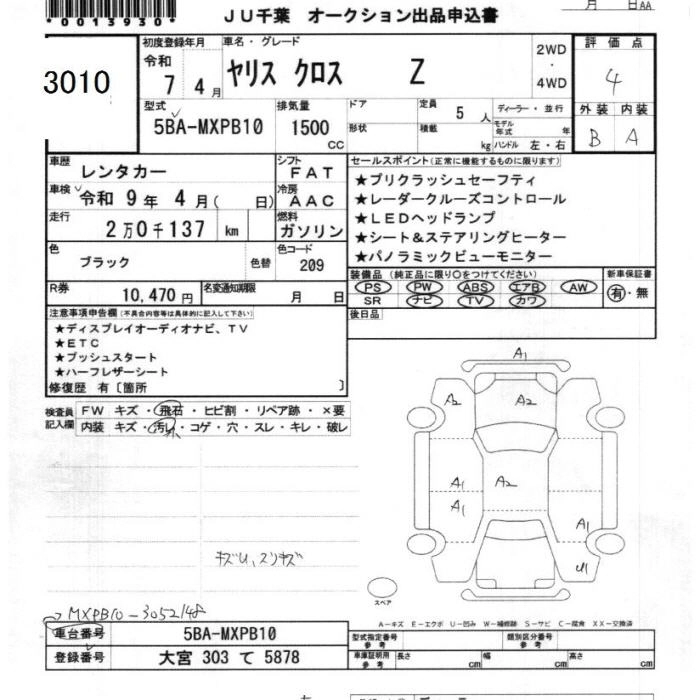 *0013930*
月 日 AA
JU千葉 オークション出品申込書
3010
初度登録年月
令和
7 4 月
車名・グレード
ヤリス クロス Z
2WD
・
4WD
評価点
4
外装 内装
B A
型式
5BA-MXPB10
排気量
1500
CC
ドア
形状
定員
5 人
積載
kg
ディーラー・並行
モデル年式 年
ハンドル 左・右
車歴
レンタカー
シフト
FAT
車検 令和 9 年 4 月( 日)
冷房
AAC
走行
2万0千137 km
燃料
ガソリン
色
ブラック
色替
色コード
209
R券
10,470 円
名変通知期限
月 日
セールスポイント(正常に機能するものに限ります)
★プリクラッシュセーフティ
★レーダークルーズコントロール
★LEDヘッドランプ
★シート&ステアリングヒーター
★パノラミックビューモニター
装備品 (純正品に限り○をつけてください)
PS PW ABS エアB AW
SR ナビ TV カワ
新車保証書
有・無
後日品
注意事項申告欄(不具合内容等は具体的に記入して下さい)
★ディスプレイオーディオナビ、TV
★ETC
★プッシュスタート
★ハーフレザーシート
修復歴 有〔箇所 〕
検査員
記入欄
FW キズ・飛石・ヒビ割・リペア跡・×要
内装 キズ・汚れ・コゲ・穴・スレ・キレ・破レ
小
A1
A2
A2
A1
A2
A1
A1
U1
キズU、スリキズ
スペア
MXPB10-3052148
A-キズ E-エクボ U-凹み W-補修跡 S-サビ C-腐食 XX-交換済
車台番号
5BA-MXPB10
登録番号
大宮 303 て 5878
型式指定番号
参考
類別区分番号
参考
車庫証明用
参考
長さ cm 幅 cm 高さ cm